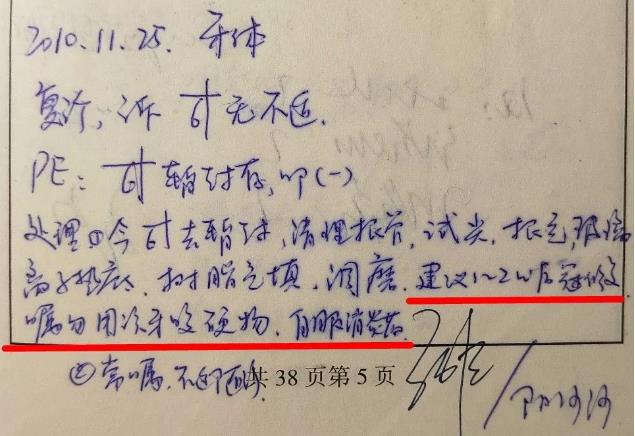 2010.11.25. 牙体
复诊,诉 6 无不适.
PE: 6 暂封存,叩(一)
处理①今 6 去暂封,清理根管,试尖,根充,玻璃
离子垫底、树脂充填,调磨.建议1~2W后冠修复
嘱勿用次牙咬硬物.自服消炎药.
②常嘱.不适随诊 共 38 页第 5 页